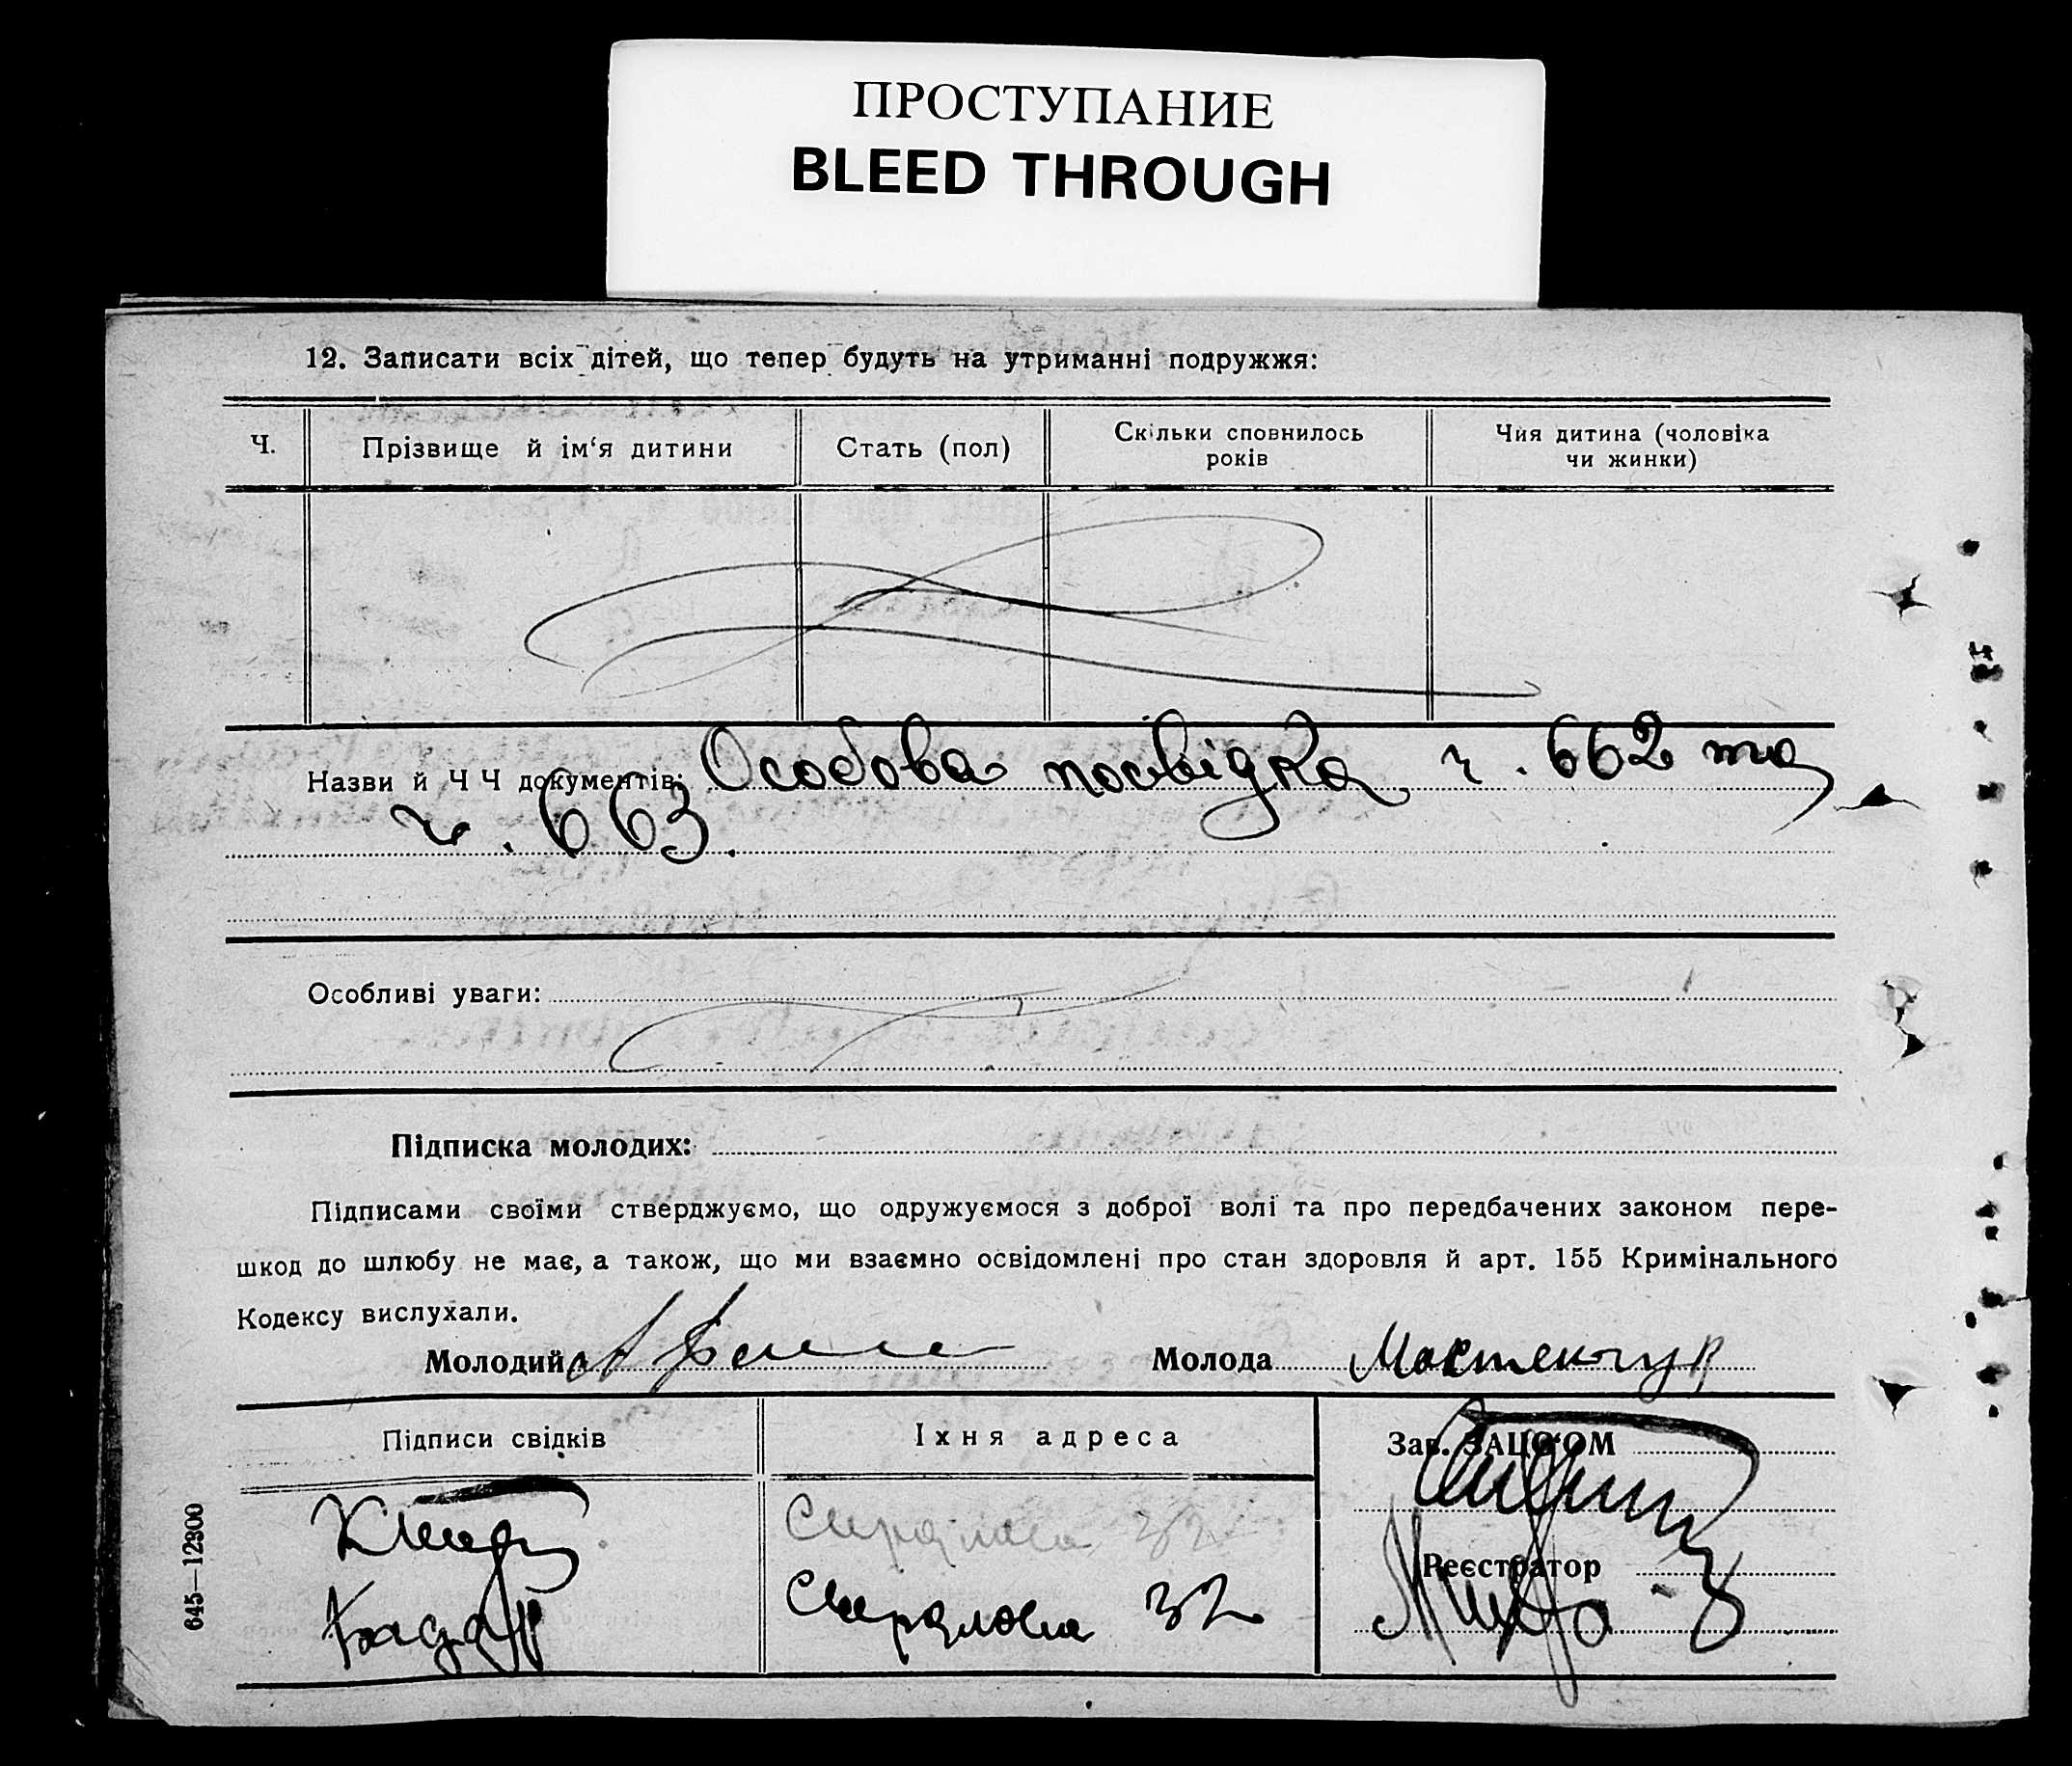 ПРОСТУПАНИЕ
BLEED THROUGH
12. Записати всіх дітей, що тепер будуть на утриманні подружжя:
Ч.
Прізвище й ім‘я дитини
Стать (пол)
Скільки сповнилось
років
Чия дитина (чоловіка
чи жинки)
Назви й Ч Ч документів: Особова посвідка ч. 662 та
ч. 663.
Особливі уваги:
Підписка молодих:
Підписами своїми стверджуємо, що одружуємося з доброї волі та про передбачених законом пере-
шкод до шлюбу не має, а також, що ми взаємно освідомлені про стан здоровля й арт. 155 Кримінального
Кодексу вислухали.
Молодий
Молода
Підписи свідків
Їхня адреса
Зав. ЗАЦС'ОМ
32
32
Реєстратор
645—12300